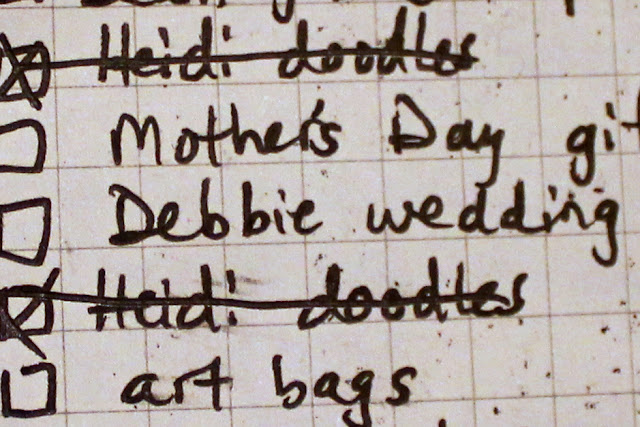 Heidi doodles
Mother's Day
Debbie wedding
Heidi doodles
art bags